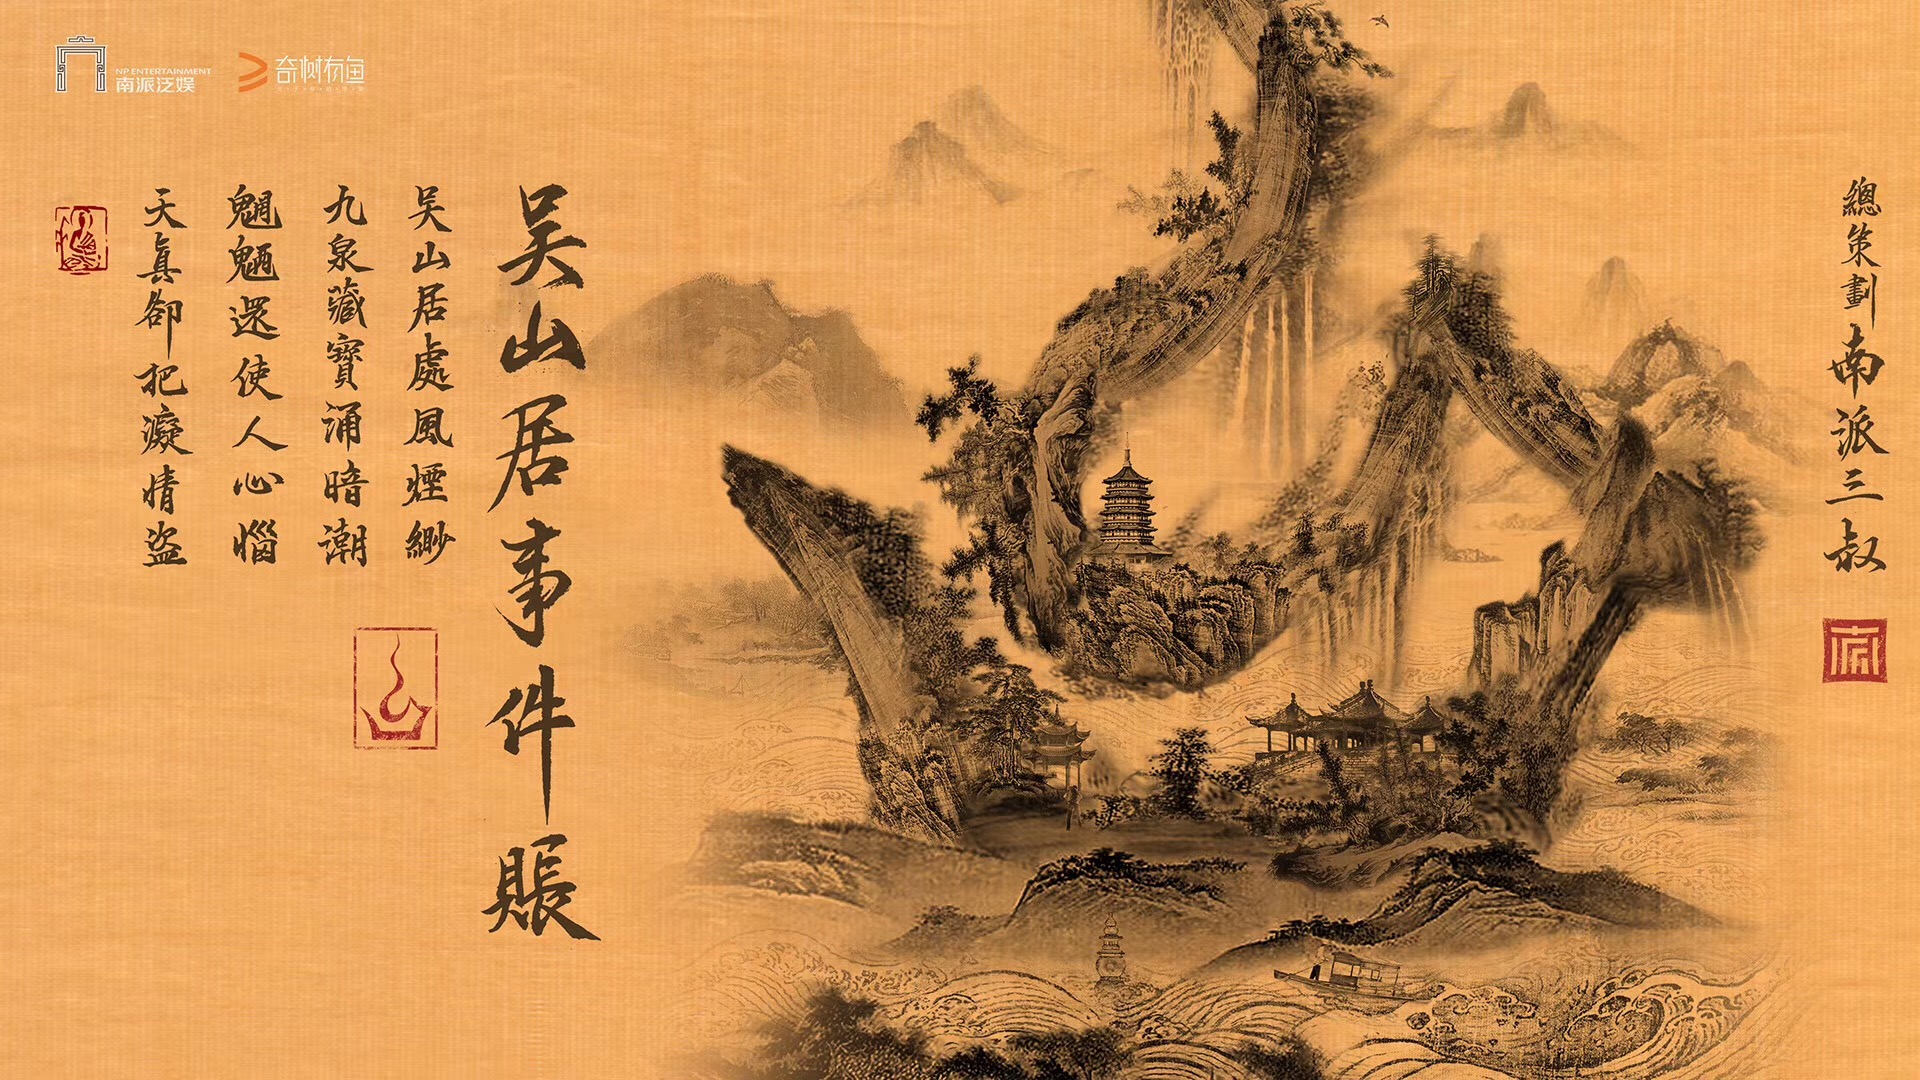 NP ENTERTAINMENT
南派泛娱
奇树有鱼
總策劃南派三叔
吴山居事件賬
吴山居處風煙緲
九泉藏寶涌暗潮
魍魎還使人心惱
天真卻把癡情盗